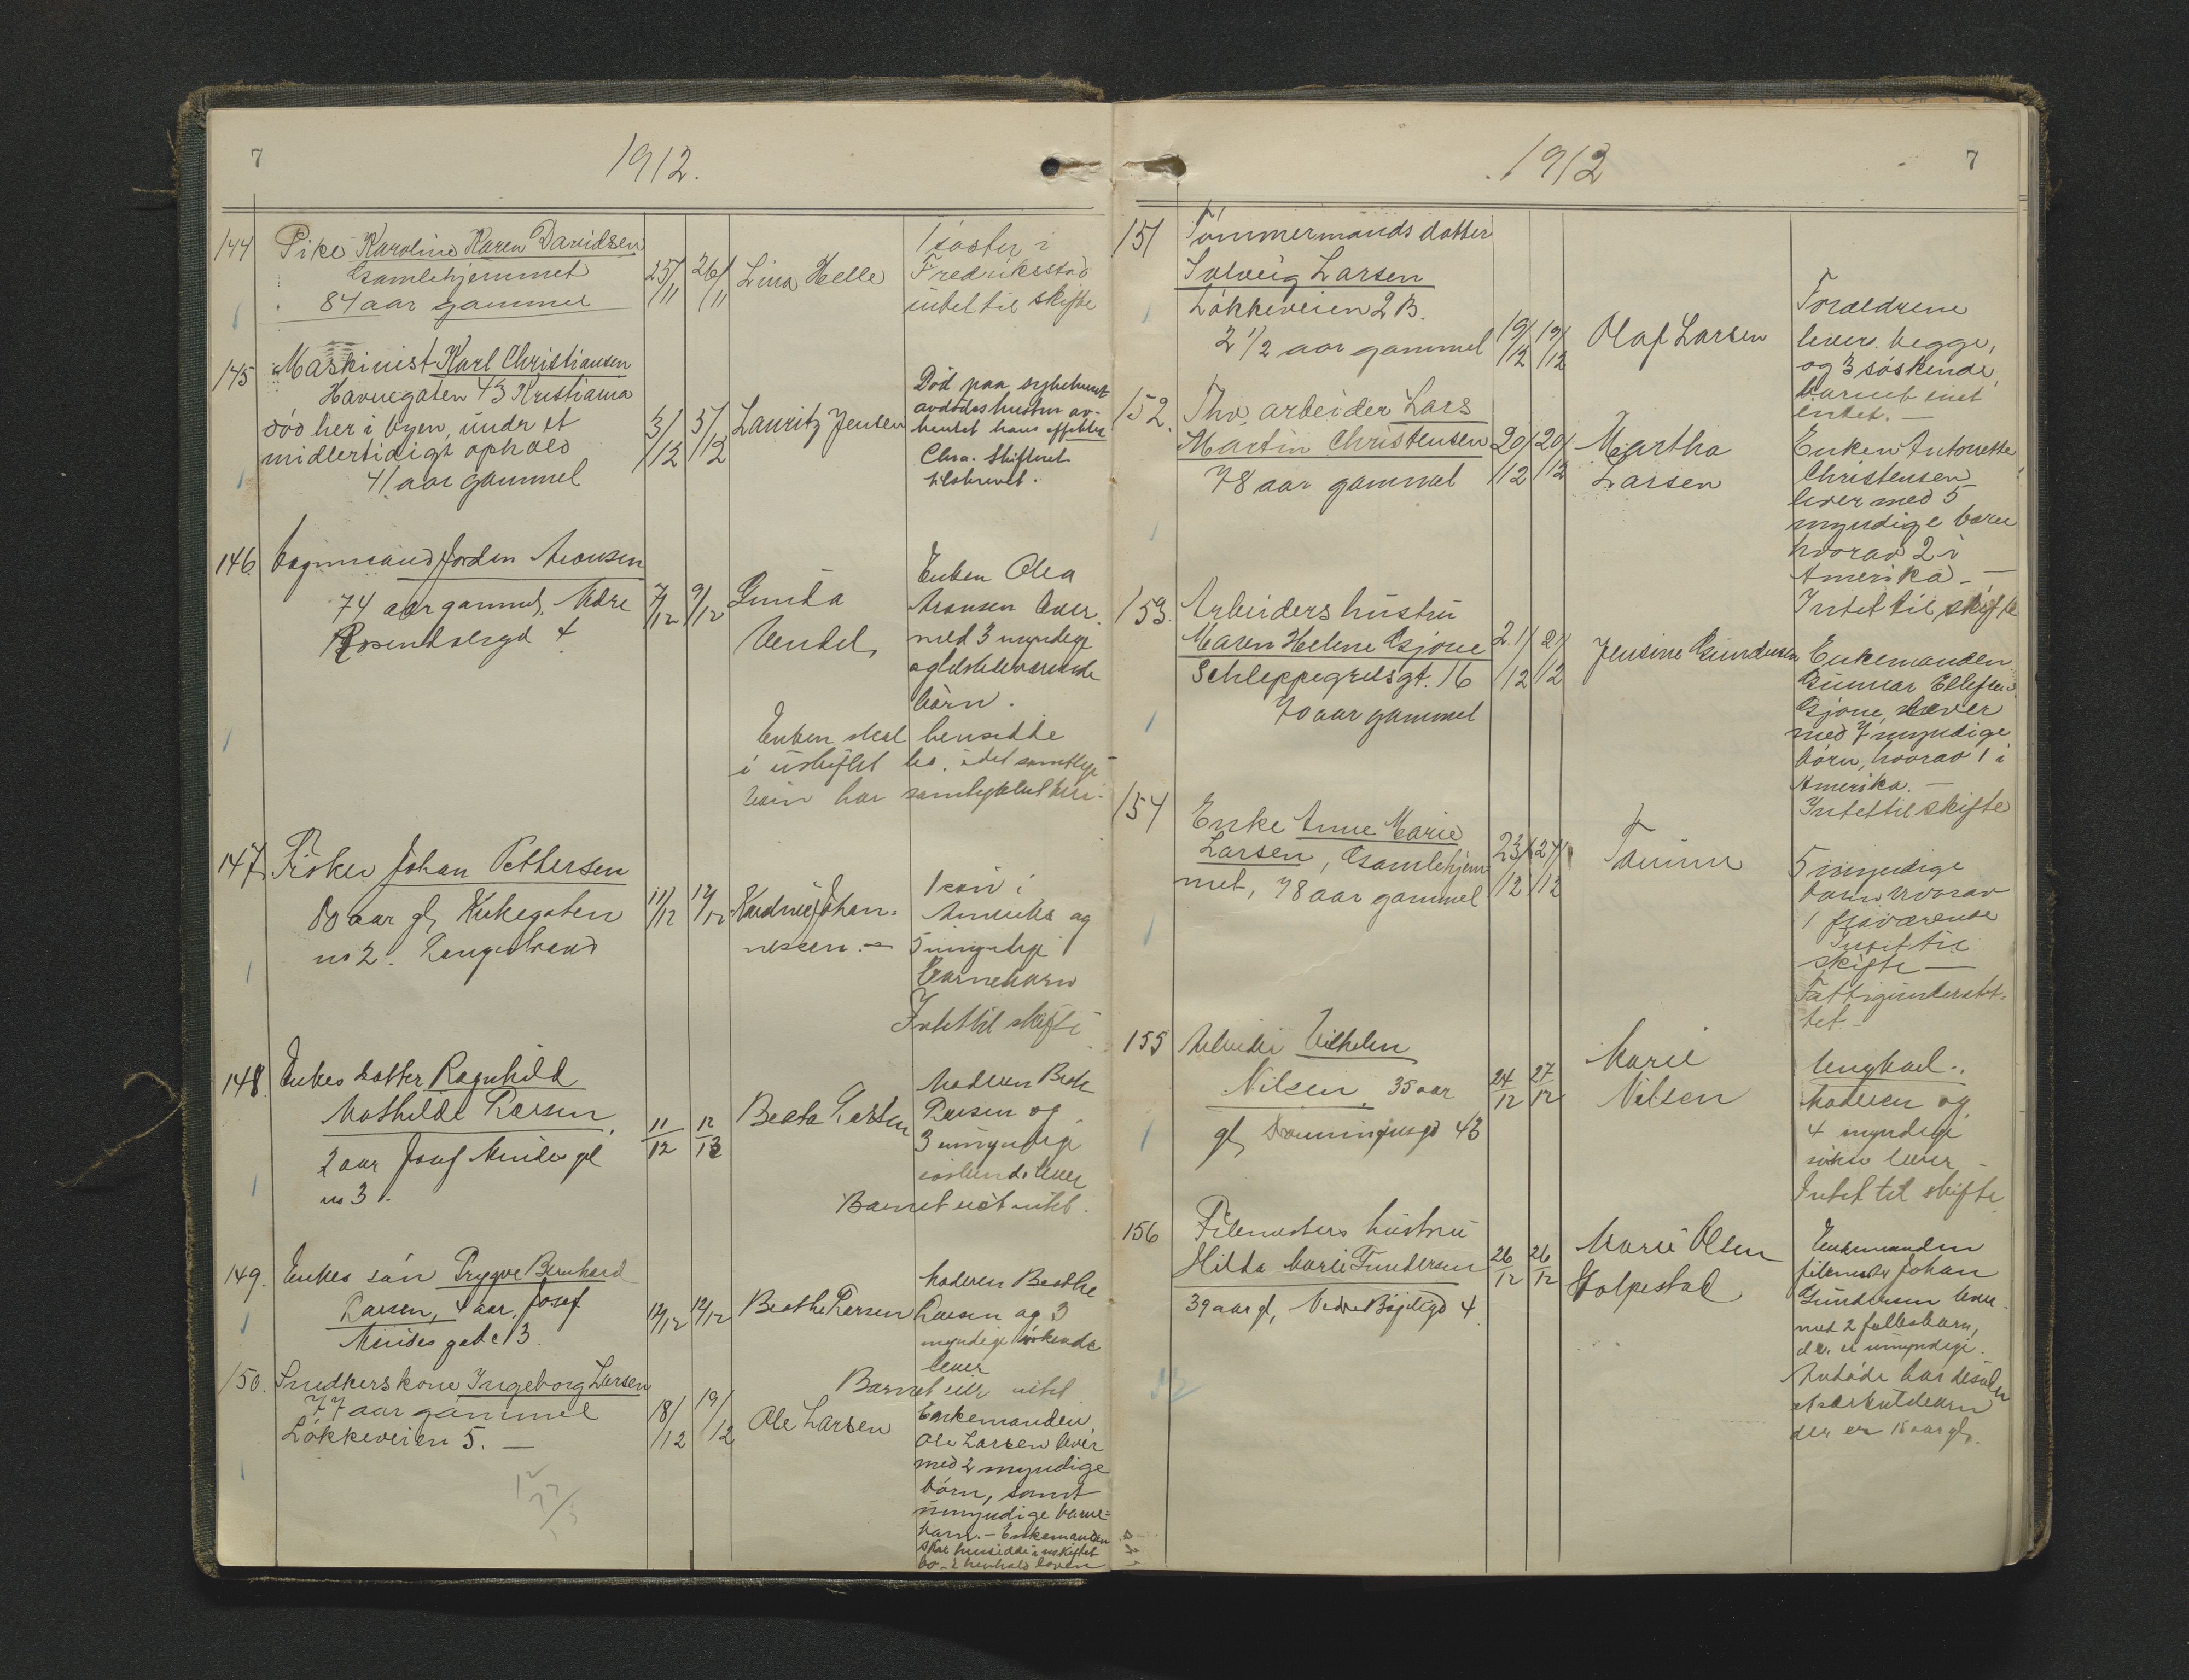 7
1912.
144 Pike Karoline Karen Davidsen
Gamlehjemmet
84 aar gammel
25/11 26/11
Lina Helle
1 søster i
Fredriksstad
intet til skifte
145 Maskinist Karl Christiansen
Havnegaten 43 Kristiania
død her i byen, under et
midlertidigt ophold
41 aar gammel
3/12 5/12
Lauritz Jensen
Død paa sykehuset
avdødes hustru av-
hentet hans effekter
Chra. Skifteret
tilskrevet.
146. Vognmand Jorden Aronsen
74 aar gammel, Nedre
Rosendalsgd 4
7/12 9/12
Gunda
Vendel
Enken Olea
Aronsen lever
med 3 myndige
og tilstedeværende
børn.
Enken skal hensidde
i uskiftet bo, idet samtlige
børn har samtykket heri.
147. Fisker Johan Pettersen
80 aar gl, Kirkegaten
no 2. Langestrand
11/12 12/12
Johan-
nessen.
1 søn i
Amerika og
5 myndige
Barnebarn
Intet til skifte
148. Enkes datter Ragnhild
Mathilde Larsen,
2 aar Josef Mindes gt
no 3.
11/12 12/12
Beata Larsen
Moderen Beate
Larsen og
3 umyndige
søskende lever
Barnet eiet intet.
149. Enkes søn Trygve Bernhard
Larsen, 4 aar, Josef
Mindes gade 13.
12/12 12/12
Beathe Larsen
Moderen Beathe
Larsen og 3
myndige søskende
lever
Barnet eier intet
150. Snedkers kone Ingeborg Larsen
77 aar gammel
Løkkeveien 5. —
18/12 19/12
Ole Larsen
Enkemanden
Ole Larsen lever
med 2 myndige
børn, samt
umyndige barne-
barn. — Enkemanden
skal hensidde i uskiftet
bo i henhold loven
1912
7
151 Tømmermands datter
Solveig Larsen
Løkkeveien 2 B.
2 1/2 aar gammel
19/12 19/12
Olaf Larsen
Forældrene
lever begge,
og 3 søskende,
barnet eiet
intet. —
152. Fhv. arbeider Lars
Martin Christensen
78 aar gammel
20/12 20/12
Martha
Larsen
Enken Antonette
Christensen
lever med 5
myndige børn
hvorav 2 i
Amerika —
Intet til skifte
153. Arbeiders hustru
Maren Helene Gjone
Schleppegrelsgt. 16
70 aar gammel
21/12 21/12
Jensine Gundersen
Enkemanden
Gunnar Ellefsen
Gjone, lever
med 7 myndige
børn, hvorav 1 i
Amerika. —
Intet til skifte
154 Enke Anne Marie
Larsen, Gamlehjem-
met, 78 aar gammel
23/12 27/12
5 myndige
barn hvorav
1 fraværende
Intet til
skifte —
Fattigunderstøt-
tet —
155 Arbeider Vilhelm
Nilsen, 35 aar
gl, Dronningensgd 43
24/12 27/12
Marie
Nilsen
Ungkarl.
Moderen og
4 myndige
søskn lever
Intet til skifte
156 Filemesters hustru
Hilda Marie Gundersen
39 aar gl, Nedre Bøjeligd 4
26/12 26/12
Marie Olsen
Holpestad
Enkemanden
filemester Johan
Gundersen lever
med 2 fællesbarn,
der er umyndige.
Avdøde har desuden
et særkuldbarn
der er 15 aar gl.